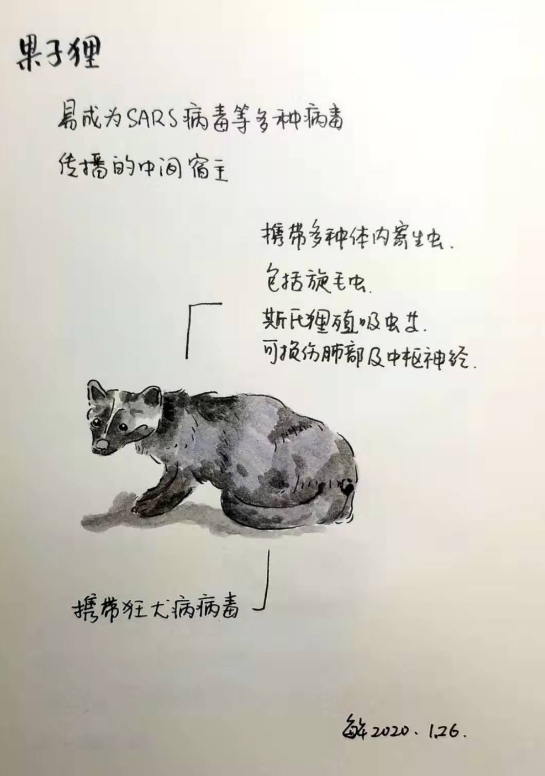 果子狸
易成为SARS病毒等多种病毒
传播的中间宿主
携带多种体内寄生虫.
包括旋毛虫.
斯氏狸殖吸虫
可损伤肺部及中枢神经.
携带狂犬病病毒
2020.1.26.